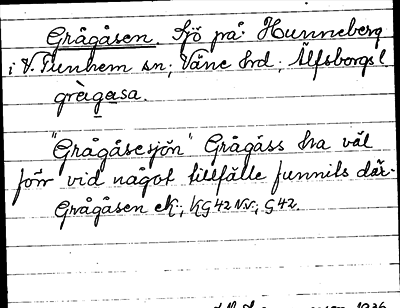 Grågåsen. Sjö på Hunneberg
i V. Tunhem sn; Väne hrd; Älfsborgs l
grègasa.
"Grågåsesjön" Grågåss ha väl
förr vid något tillfälle funnits där.
Grågåsen ek; KG 42 NV; G 42.
1936